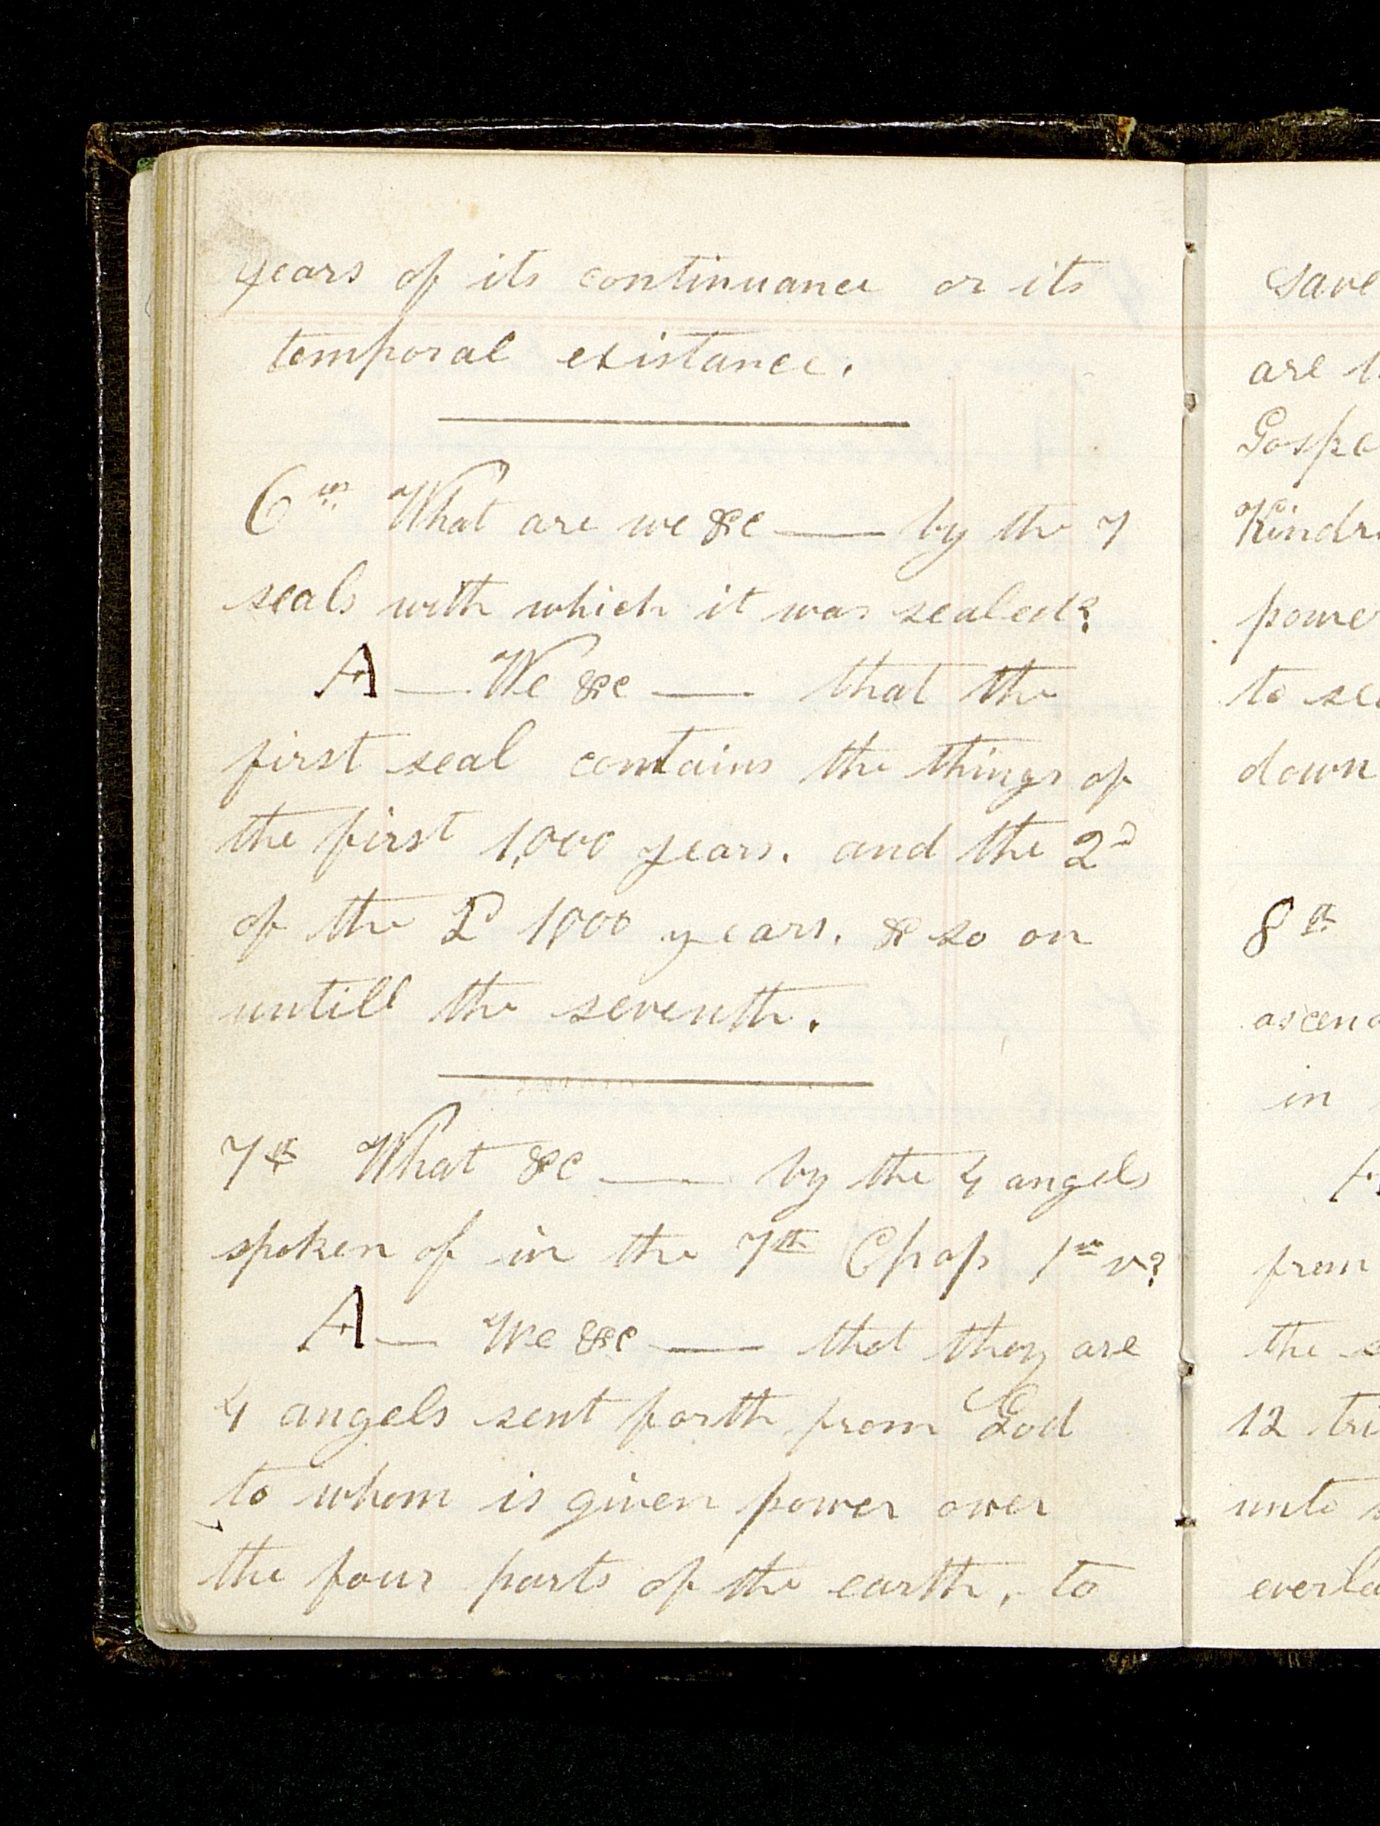 years of its continuance or its
temporal existance.
6th What are we &c — by the 7
seals with which it was sealed?
A — We &c — that the
first seal contains the things of
the first 1,000 years. and the 2d
of the 2d 1000 years. & so on
untill the seventh.
7th What &c — by the 4 angels
spoken of in the 7th Chap 1st v?
A — We &c — that they are
4 angels sent forth from God
to whom is given power over
the four parts of the earth, to
save
are
Gospe
Kindr
power
to sea
down
8th
ascend
in
from
the
12 tri
unto
everla